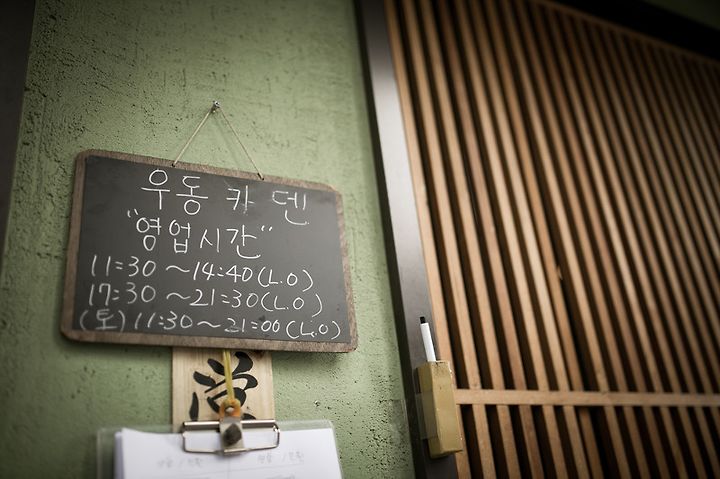 우동 카덴
"영업시간"
11:30 ~ 14:40(L.O)
17:30 ~ 21:30(L.O)
(토) 11:30 ~ 21:00(L.O)